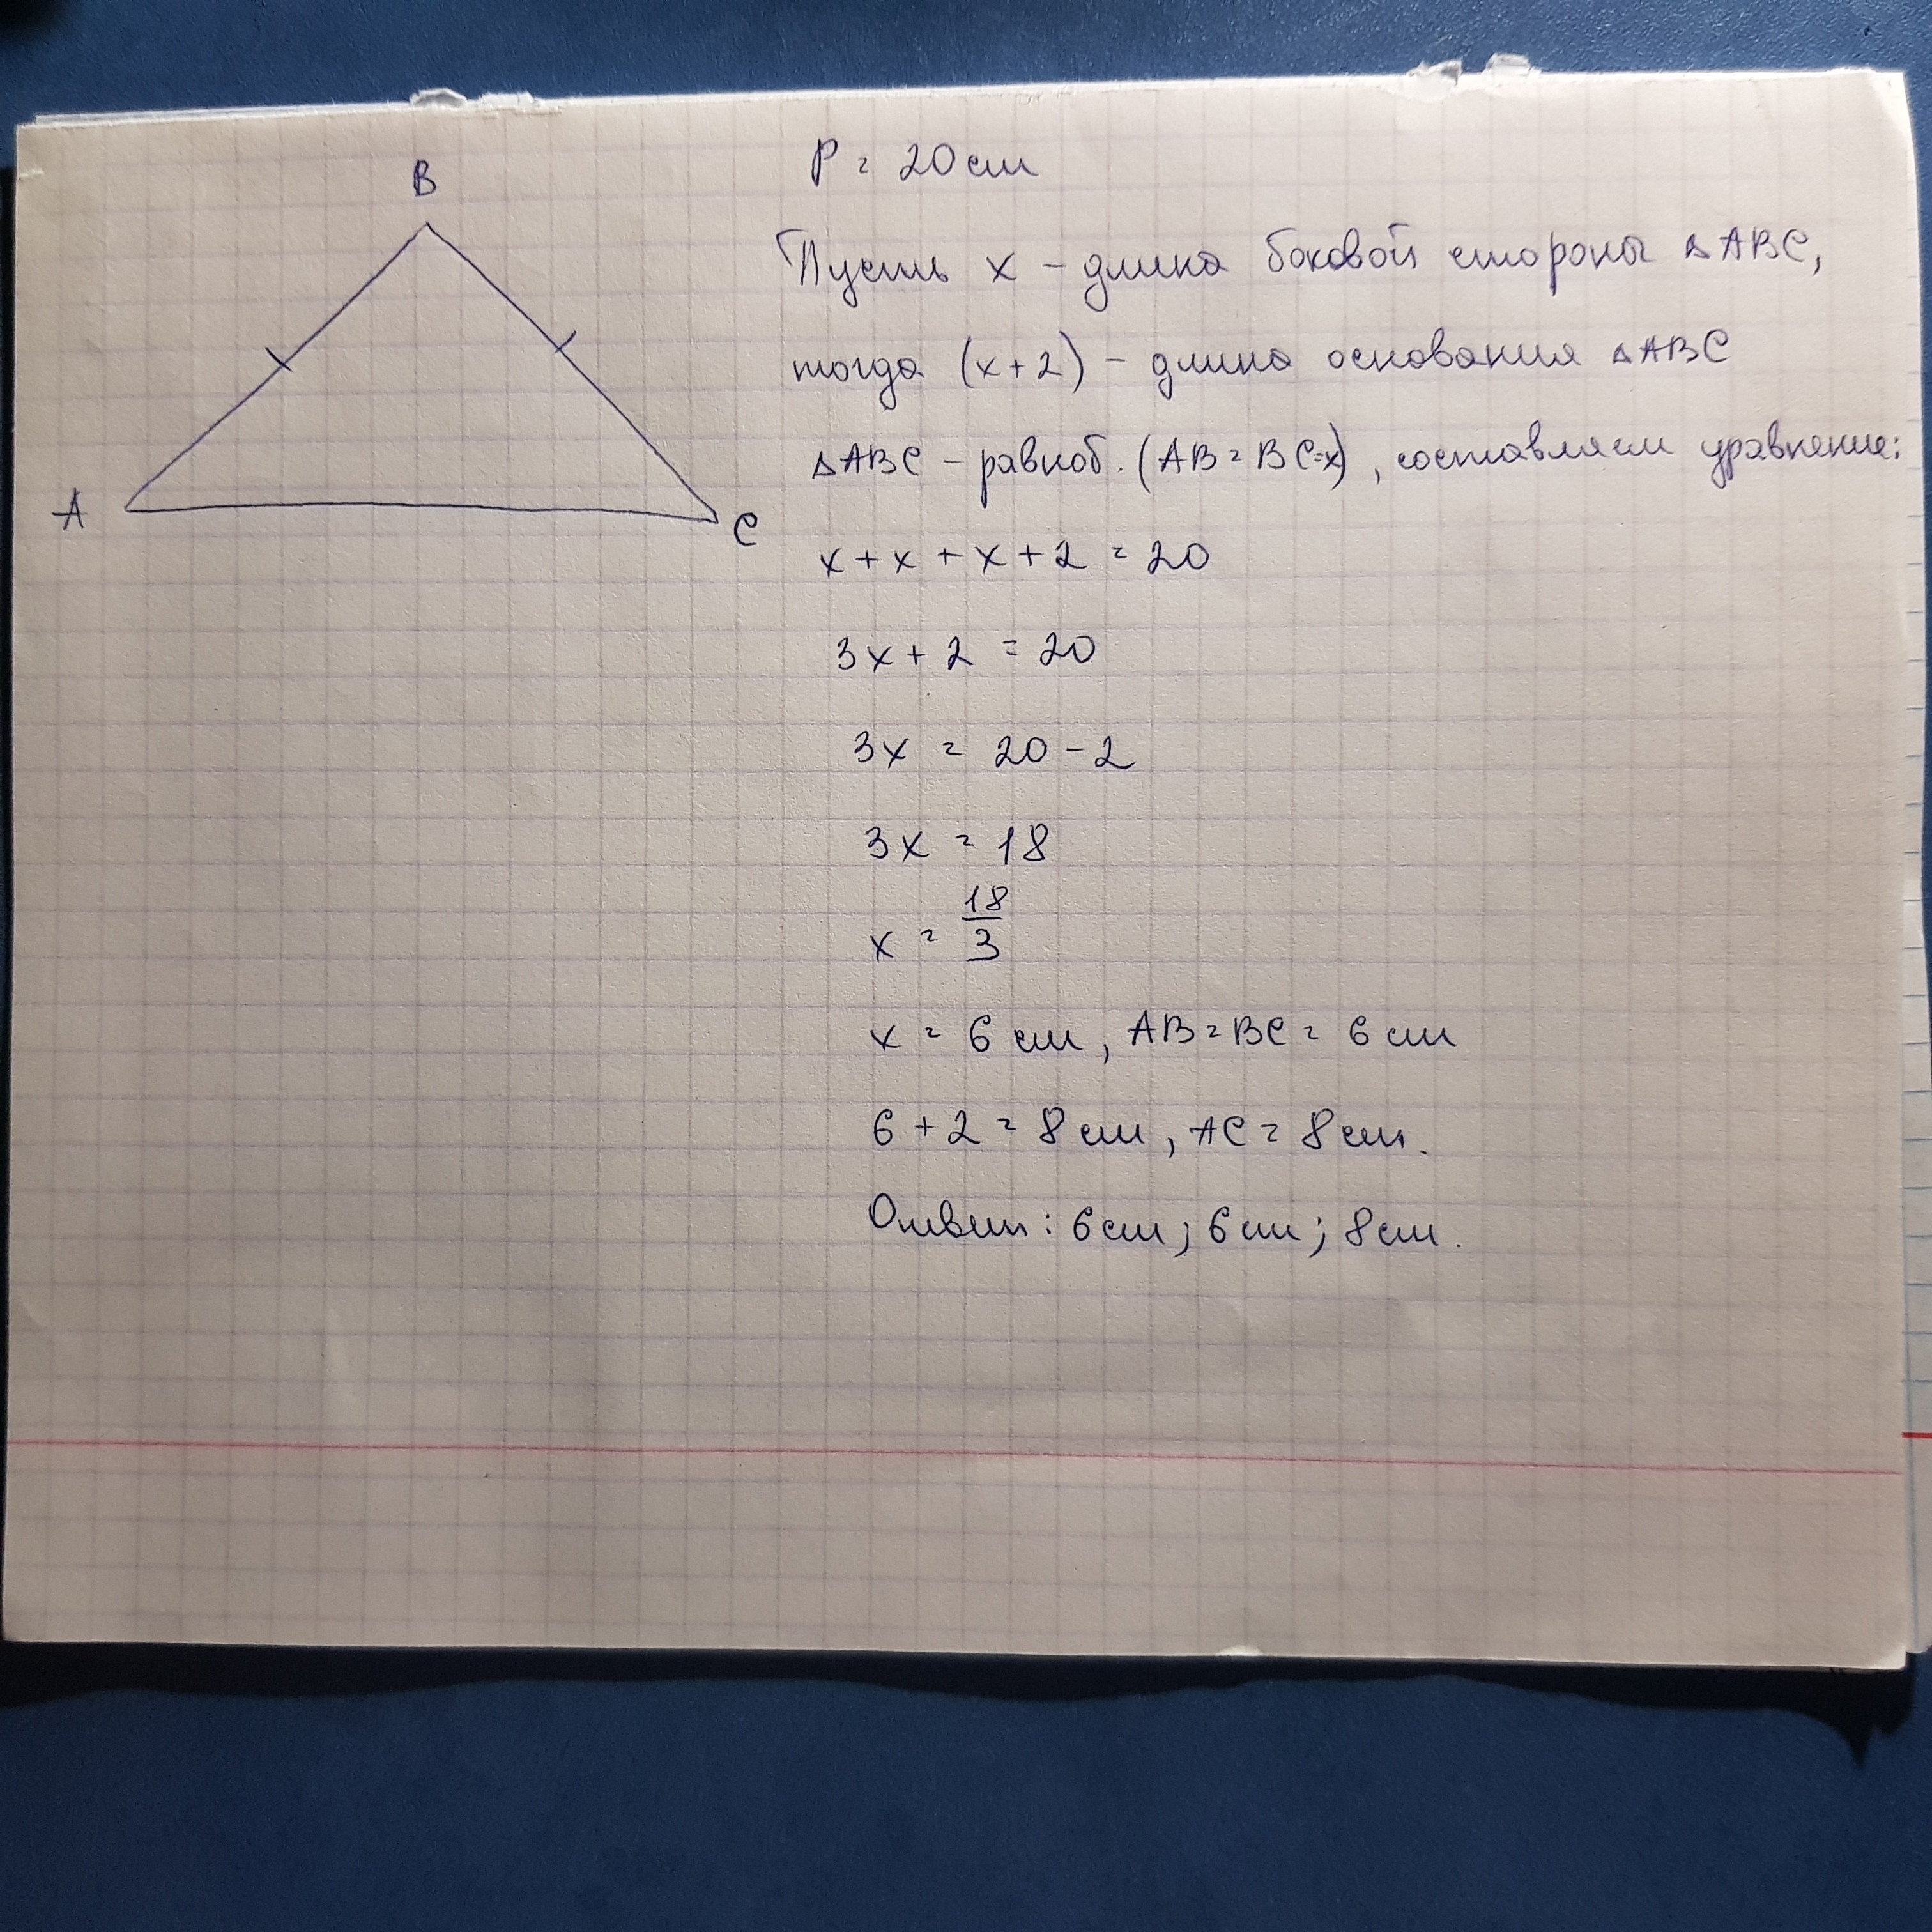 B
A
C
P = 20 см
Пусть x – длина боковой стороны △ABC,
тогда (x+2) – длина основания △ABC
△ABC – равноб. (AB = BC=x), составляем уравнение:
x + x + x + 2 = 20
3x + 2 = 20
3x = 20 - 2
3x = 18
x = 18/3
x = 6 см, AB = BC = 6 см
6 + 2 = 8 см, AC = 8 см.
Ответ: 6 см; 6 см; 8 см.